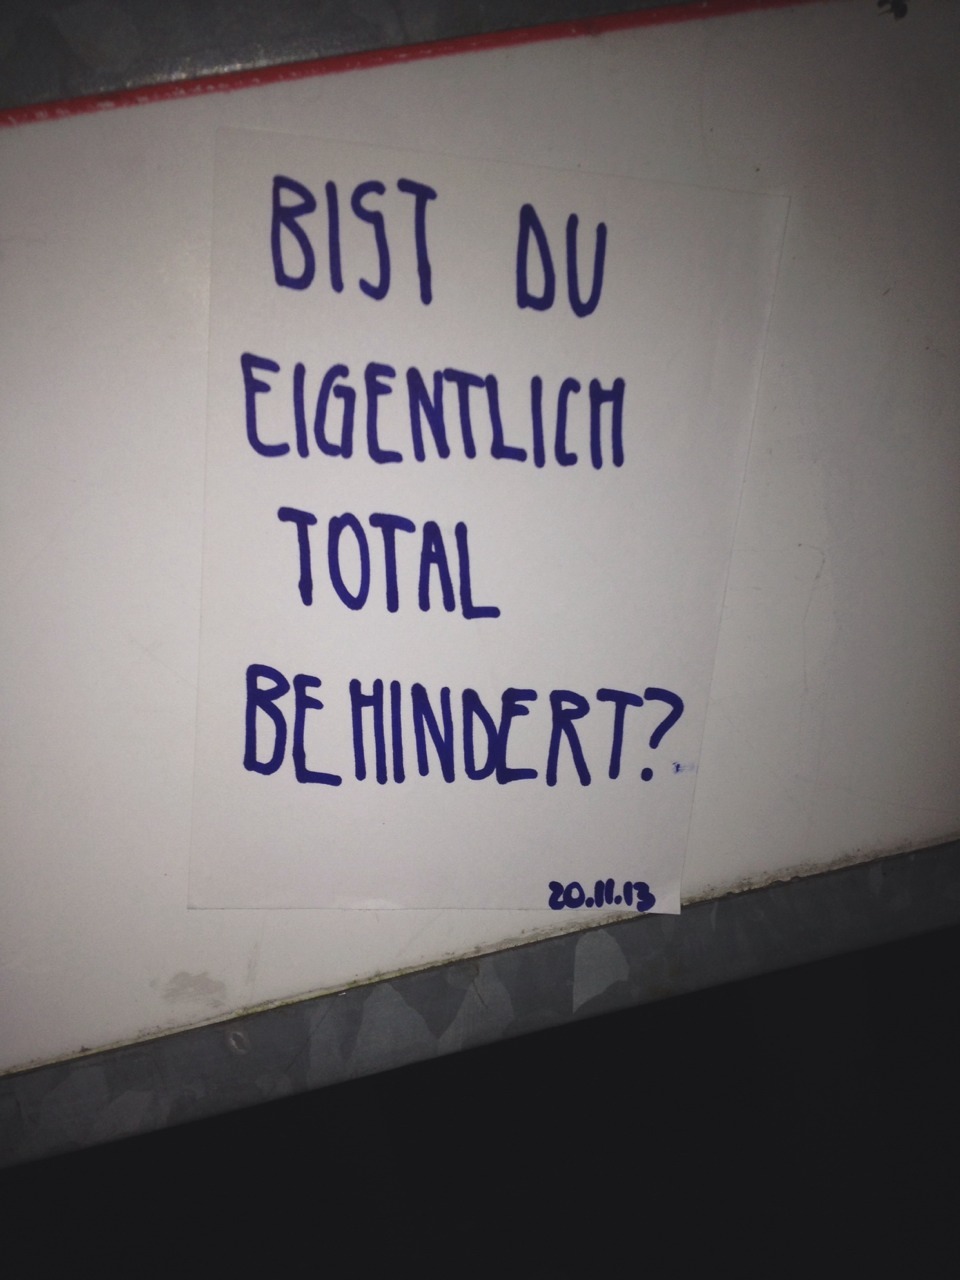 BIST DU
EIGENTLICH
TOTAL
BEHINDERT?
20.11.13